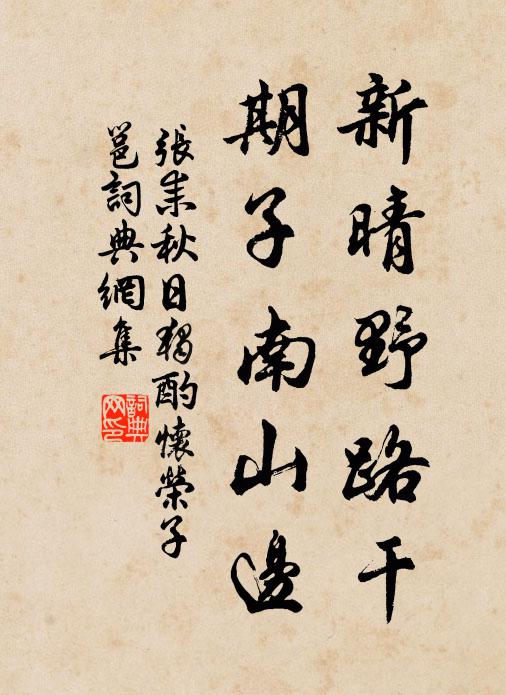 新晴野路干
期子南山邊
張耒秋日獨酌懷榮子
邕詞典網集
詞典
網印